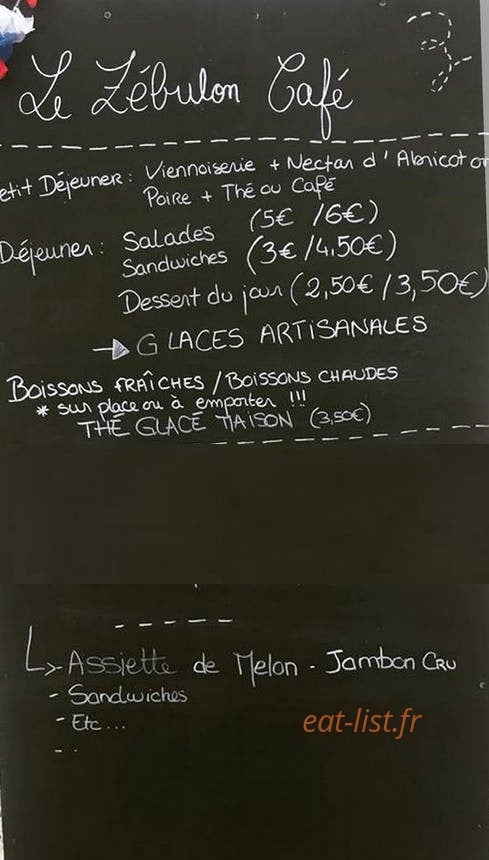 Le Zébulon Café
etit Déjeuner : Viennoiserie + Nectar d'Abricot or
Poire + Thé ou Café
Déjeuner : Salades (5€ /6€)
Sandwiches (3€ /4,50€)
Dessert du jour (2,50€ / 3,50€)
→ GLACES ARTISANALES
BOISSONS FRAÎCHES / BOISSONS CHAUDES
* sur place ou à emporter !!!
THÉ GLACÉ MAISON (3,50€)
↳ Assiette de Melon - Jambon CRU
- Sandwiches
- Etc...
- .
eat-list.fr